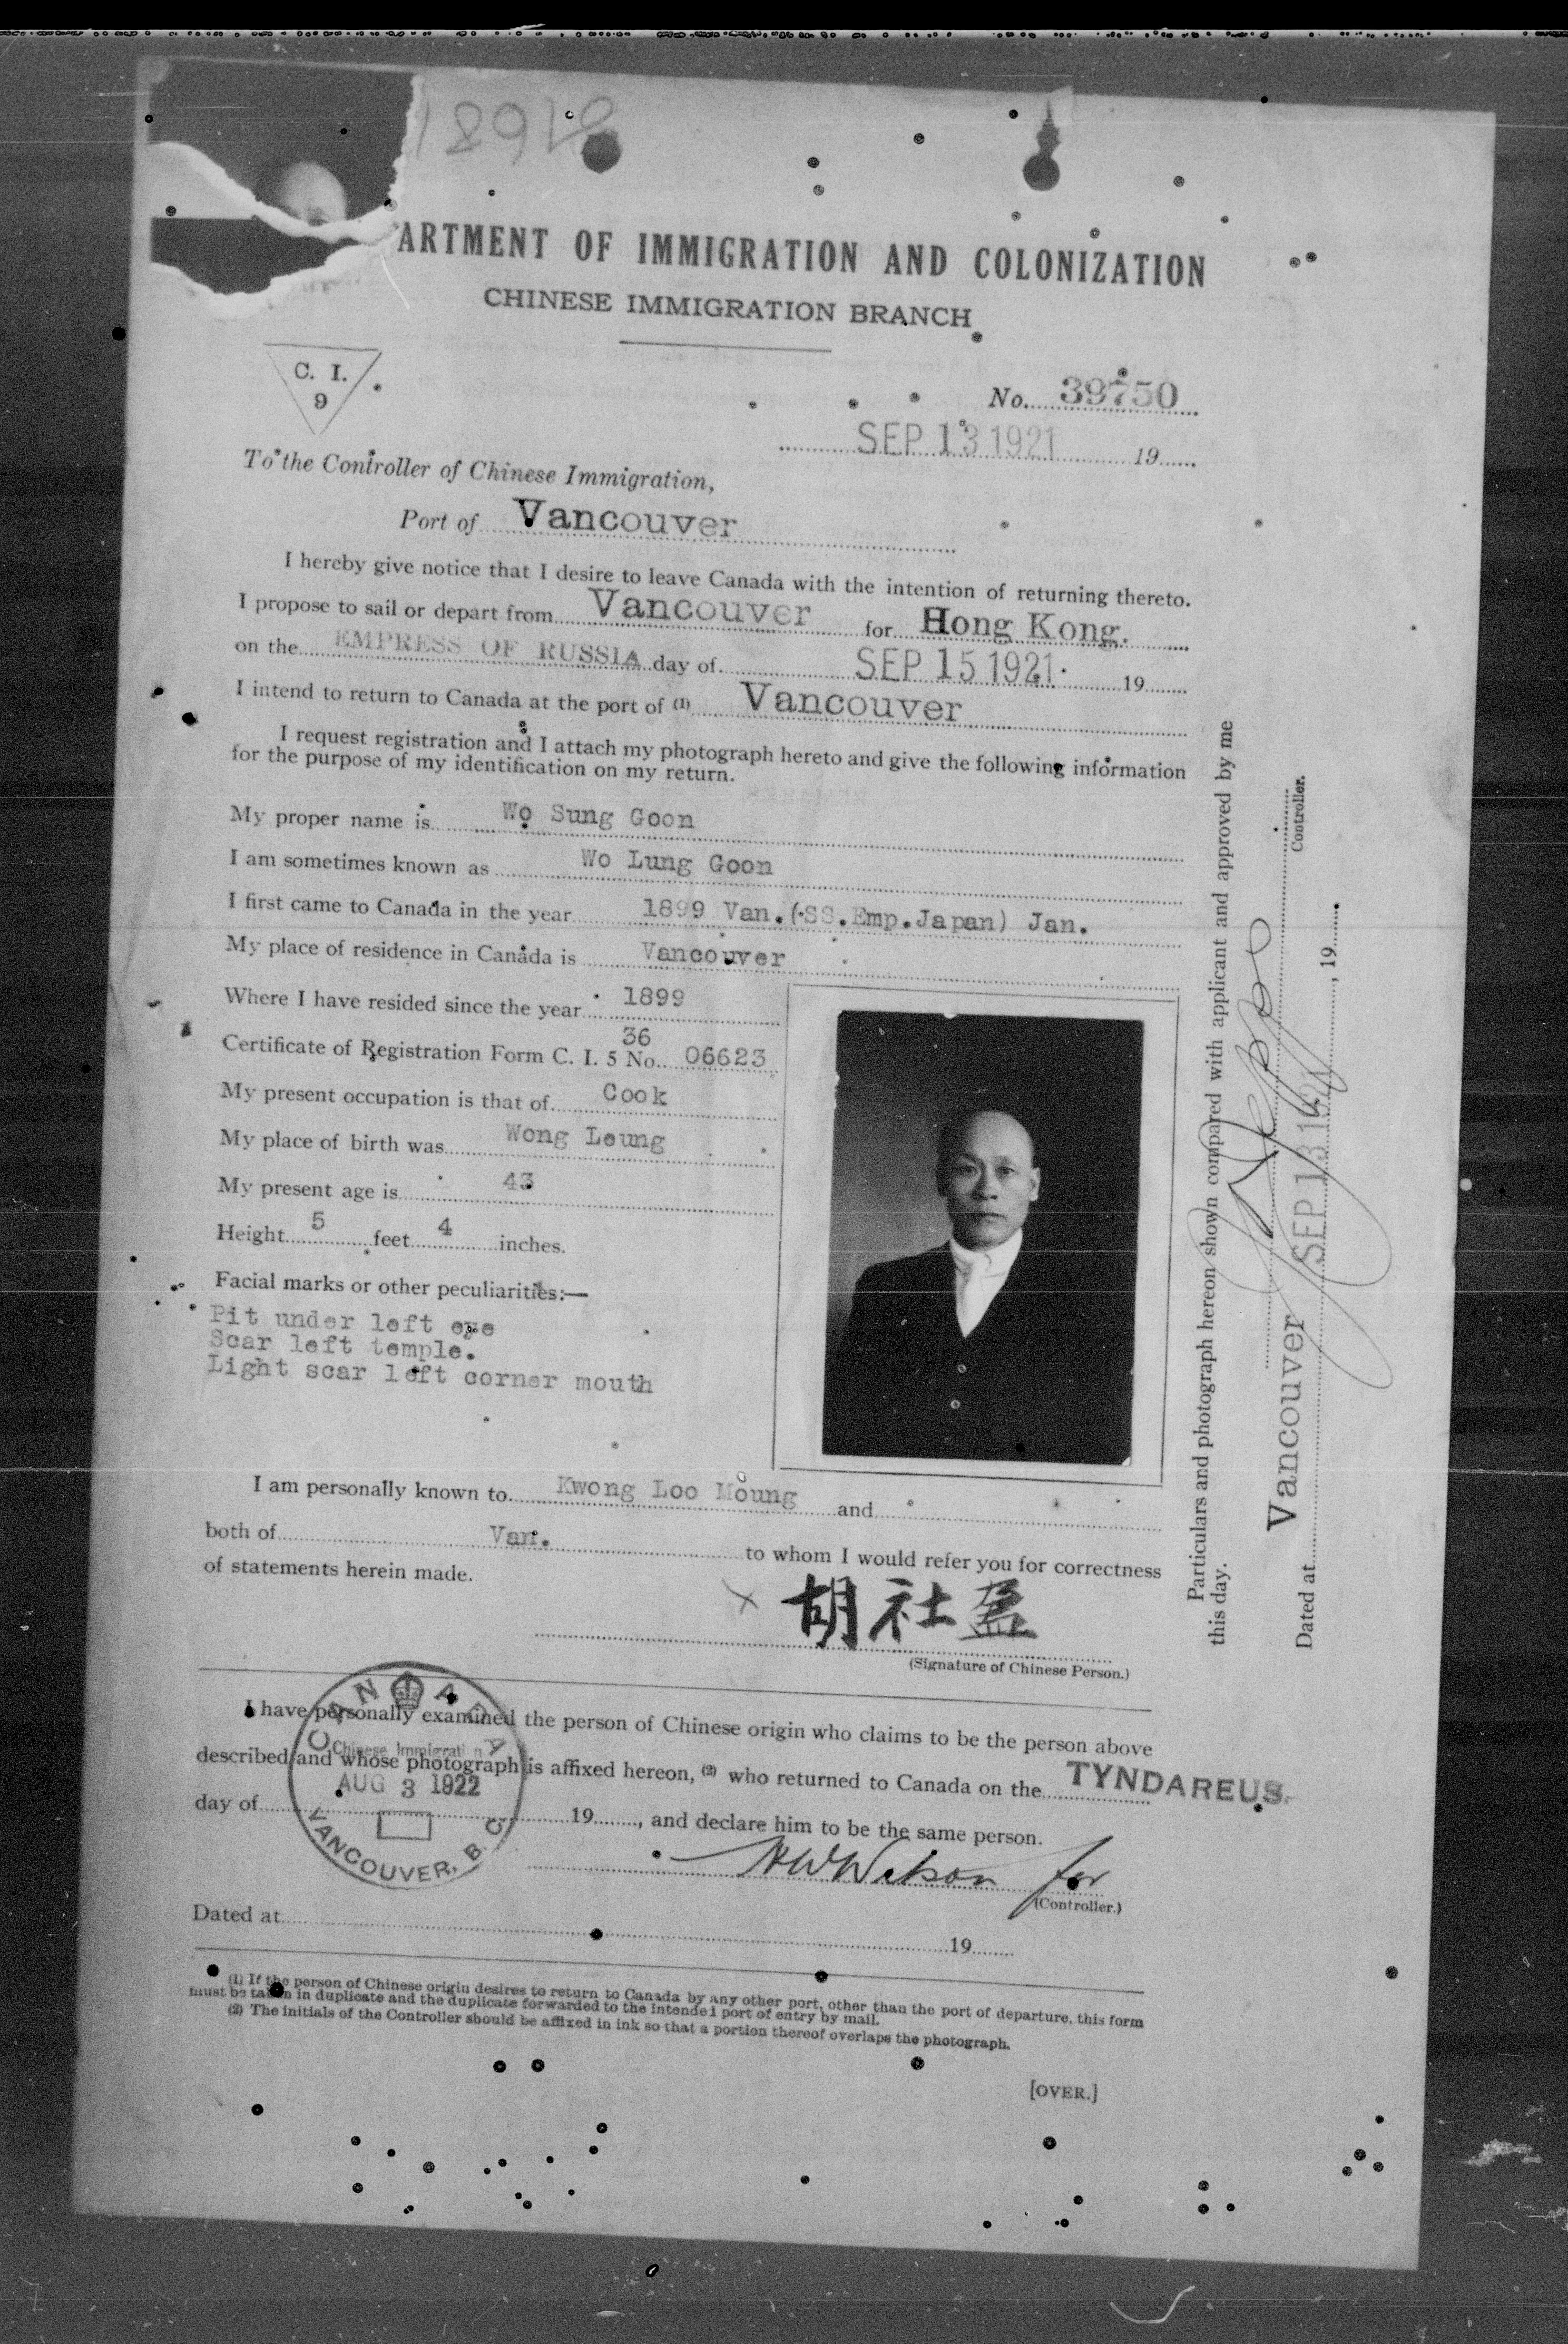 ARTMENT OF IMMIGRATION AND COLONIZATION
CHINESE IMMIGRATION BRANCH
C. I.
9
No. 39750
SEP 13 1921 19
To the Controller of Chinese Immigration,
Port of Vancouver
I hereby give notice that I desire to leave Canada with the intention of returning thereto.
I propose to sail or depart from Vancouver for Hong Kong.
on the EMPRESS OF RUSSIA day of SEP 15 1921 19
I intend to return to Canada at the port of (1) Vancouver
I request registration and I attach my photograph hereto and give the following information
for the purpose of my identification on my return.
My proper name is Wo Sung Goon
I am sometimes known as Wo Lung Goon
I first came to Canada in the year 1899 Van. (SS.Emp.Japan) Jan.
My place of residence in Canada is Vancouver
Where I have resided since the year 1899
36
Certificate of Registration Form C. I. 5 No. 06623
My present occupation is that of Cook
My place of birth was Wong Leung
My present age is 43
Height 5 feet 4 inches.
Facial marks or other peculiarities:—
Pit under left eye
Scar left temple.
Light scar left corner mouth
I am personally known to Kwong Loo Moung and
both of Van. to whom I would refer you for correctness
of statements herein made.
胡社
(Signature of Chinese Person.)
I have personally examined the person of Chinese origin who claims to be the person above
described and whose photograph is affixed hereon, (2) who returned to Canada on the TYNDAREUS.
day of 19, and declare him to be the same person.
CANADA
Chinese Immigration
AUG 3 1922
VANCOUVER, B. C.
HWWilson for
(Controller.)
Dated at 19
(1) If the person of Chinese origin desires to return to Canada by any other port, other than the port of departure, this form
must be taken in duplicate and the duplicate forwarded to the intended port of entry by mail.
(2) The initials of the Controller should be affixed in ink so that a portion thereof overlaps the photograph.
[OVER.]
Particulars and photograph hereon shown compared with applicant and approved by me
this day.
Controller.
Dated at Vancouver SEP 13 1921, 19